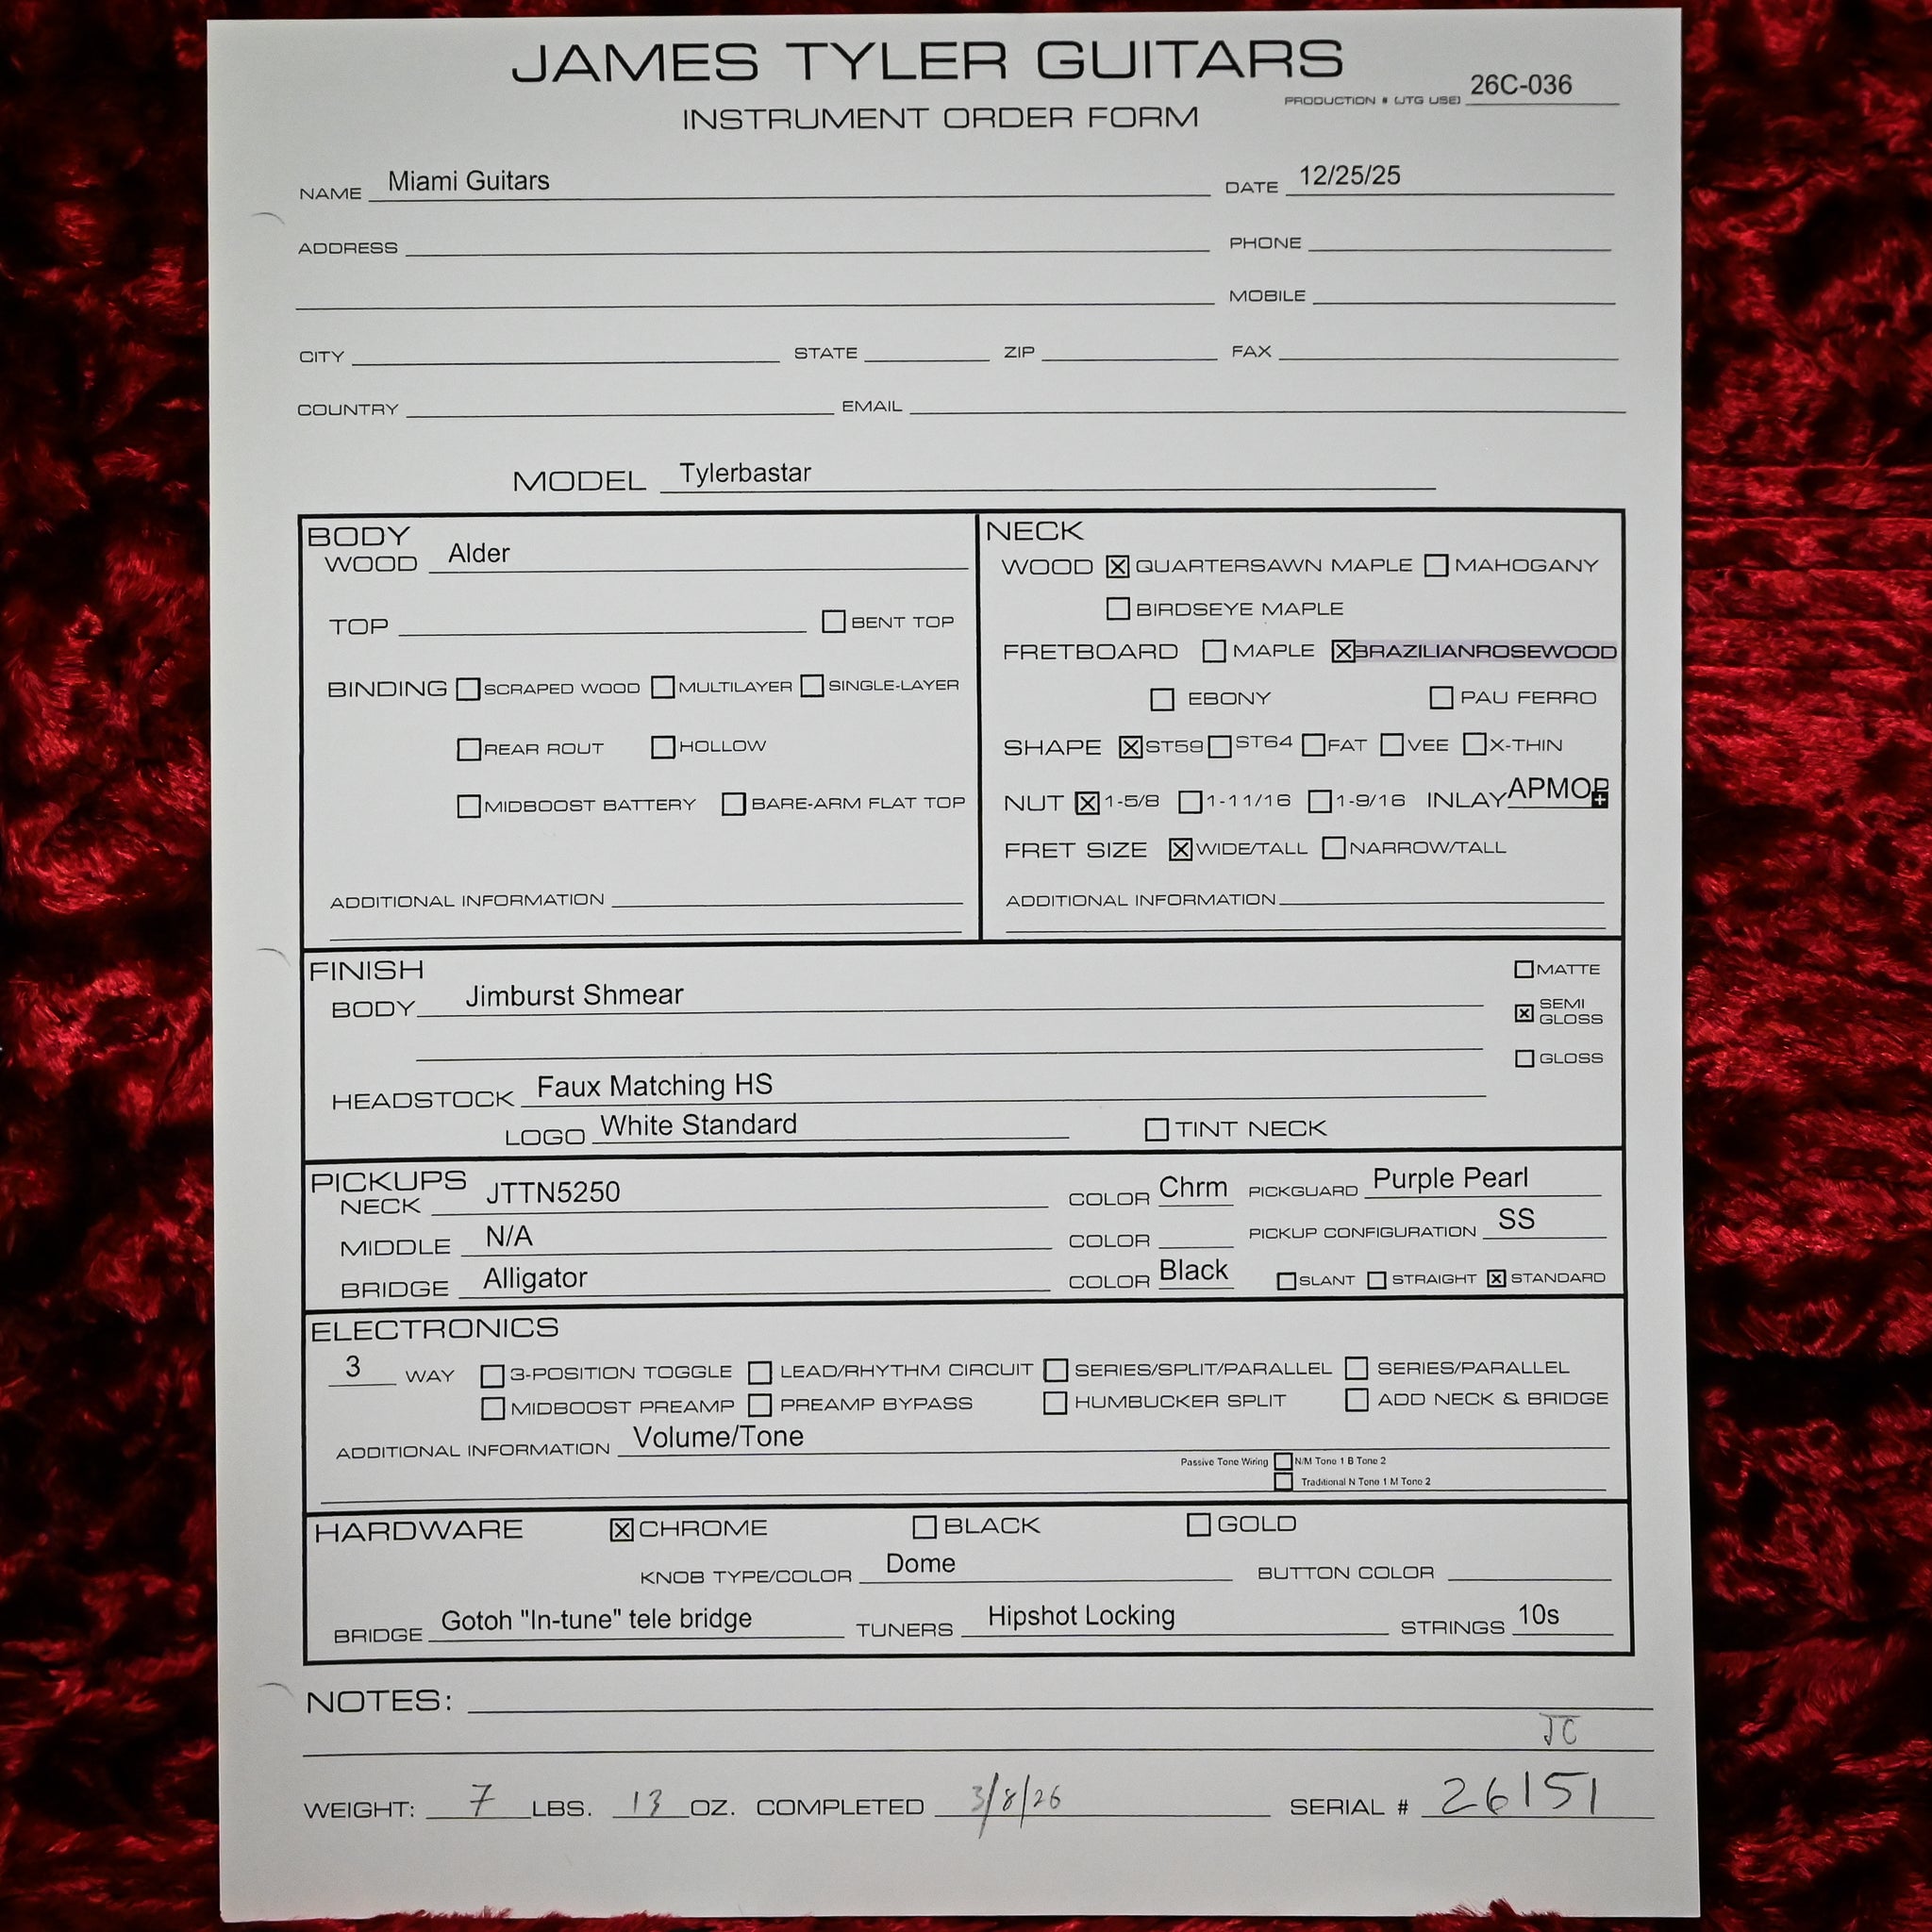 JAMES TYLER GUITARS
INSTRUMENT ORDER FORM
PRODUCTION # (JTG USE) 26C-036
NAME Miami Guitars DATE 12/25/25
ADDRESS PHONE
MOBILE
CITY STATE ZIP FAX
COUNTRY EMAIL
MODEL Tylerbastar
BODY
WOOD Alder
TOP BENT TOP
BINDING SCRAPED WOOD MULTILAYER SINGLE-LAYER
REAR ROUT HOLLOW
MIDBOOST BATTERY BARE-ARM FLAT TOP
ADDITIONAL INFORMATION
NECK
WOOD X QUARTERSAWN MAPLE MAHOGANY
BIRDSEYE MAPLE
FRETBOARD MAPLE X BRAZILIANROSEWOOD
EBONY PAU FERRO
SHAPE X ST59 ST64 FAT VEE X-THIN
NUT X 1-5/8 1-11/16 1-9/16 INLAY APMOP
FRET SIZE X WIDE/TALL NARROW/TALL
ADDITIONAL INFORMATION
FINISH
MATTE
BODY Jimburst Shmear
X SEMI GLOSS
GLOSS
HEADSTOCK Faux Matching HS
LOGO White Standard TINT NECK
PICKUPS
NECK JTTN5250 COLOR Chrm PICKGUARD Purple Pearl
MIDDLE N/A COLOR PICKUP CONFIGURATION SS
BRIDGE Alligator COLOR Black SLANT STRAIGHT X STANDARD
ELECTRONICS
3 WAY 3-POSITION TOGGLE LEAD/RHYTHM CIRCUIT SERIES/SPLIT/PARALLEL SERIES/PARALLEL
MIDBOOST PREAMP PREAMP BYPASS HUMBUCKER SPLIT ADD NECK & BRIDGE
ADDITIONAL INFORMATION Volume/Tone
Passive Tone Wiring N/M Tone 1 B Tone 2
Traditional N Tone 1 M Tone 2
HARDWARE X CHROME BLACK GOLD
KNOB TYPE/COLOR Dome BUTTON COLOR
BRIDGE Gotoh "In-tune" tele bridge TUNERS Hipshot Locking STRINGS 10s
NOTES:
JC
WEIGHT: 7 LBS. 13 OZ. COMPLETED 3/8/26 SERIAL # 26151